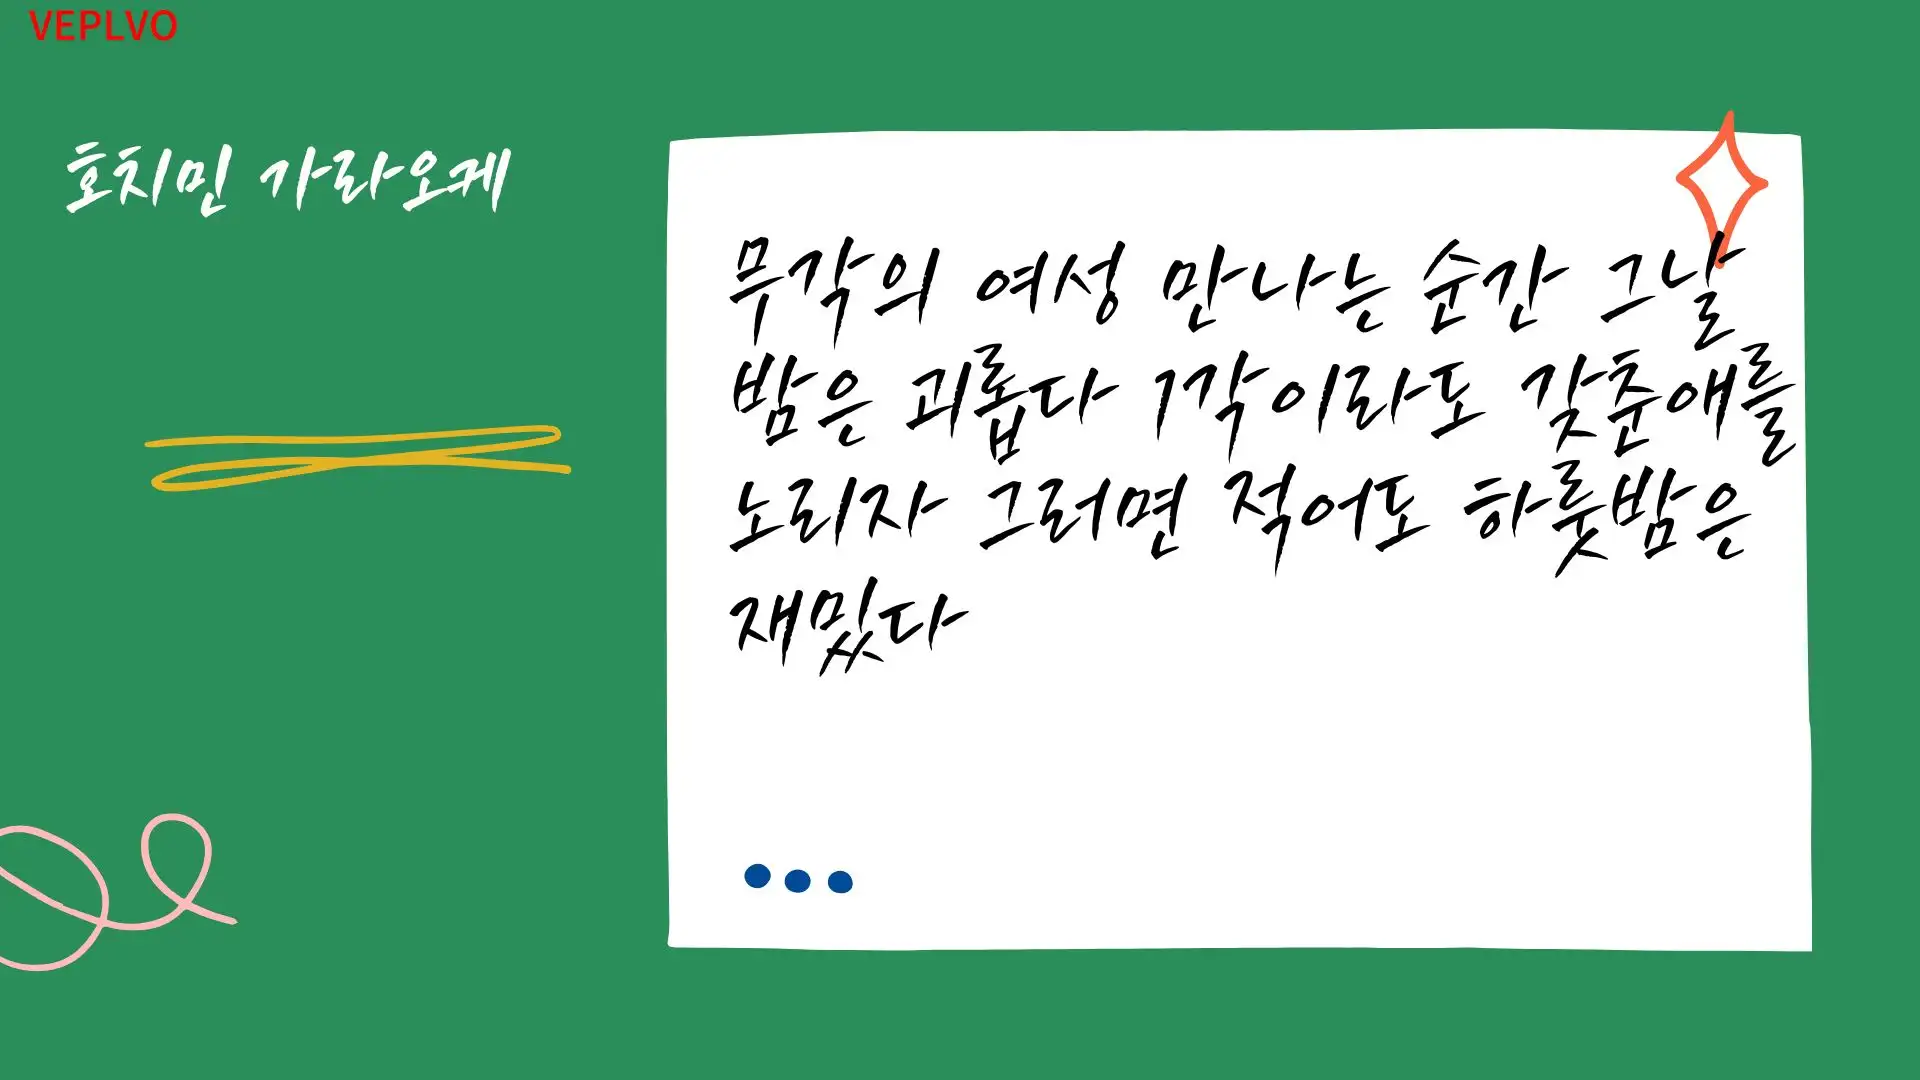 VEPLVO
호치민 가라오케
무각의 여성 만나는 순간 그날
밤은 괴롭다 1각이라도 갖춘애를
노리자 그러면 적어도 하룻밤은
재밌다